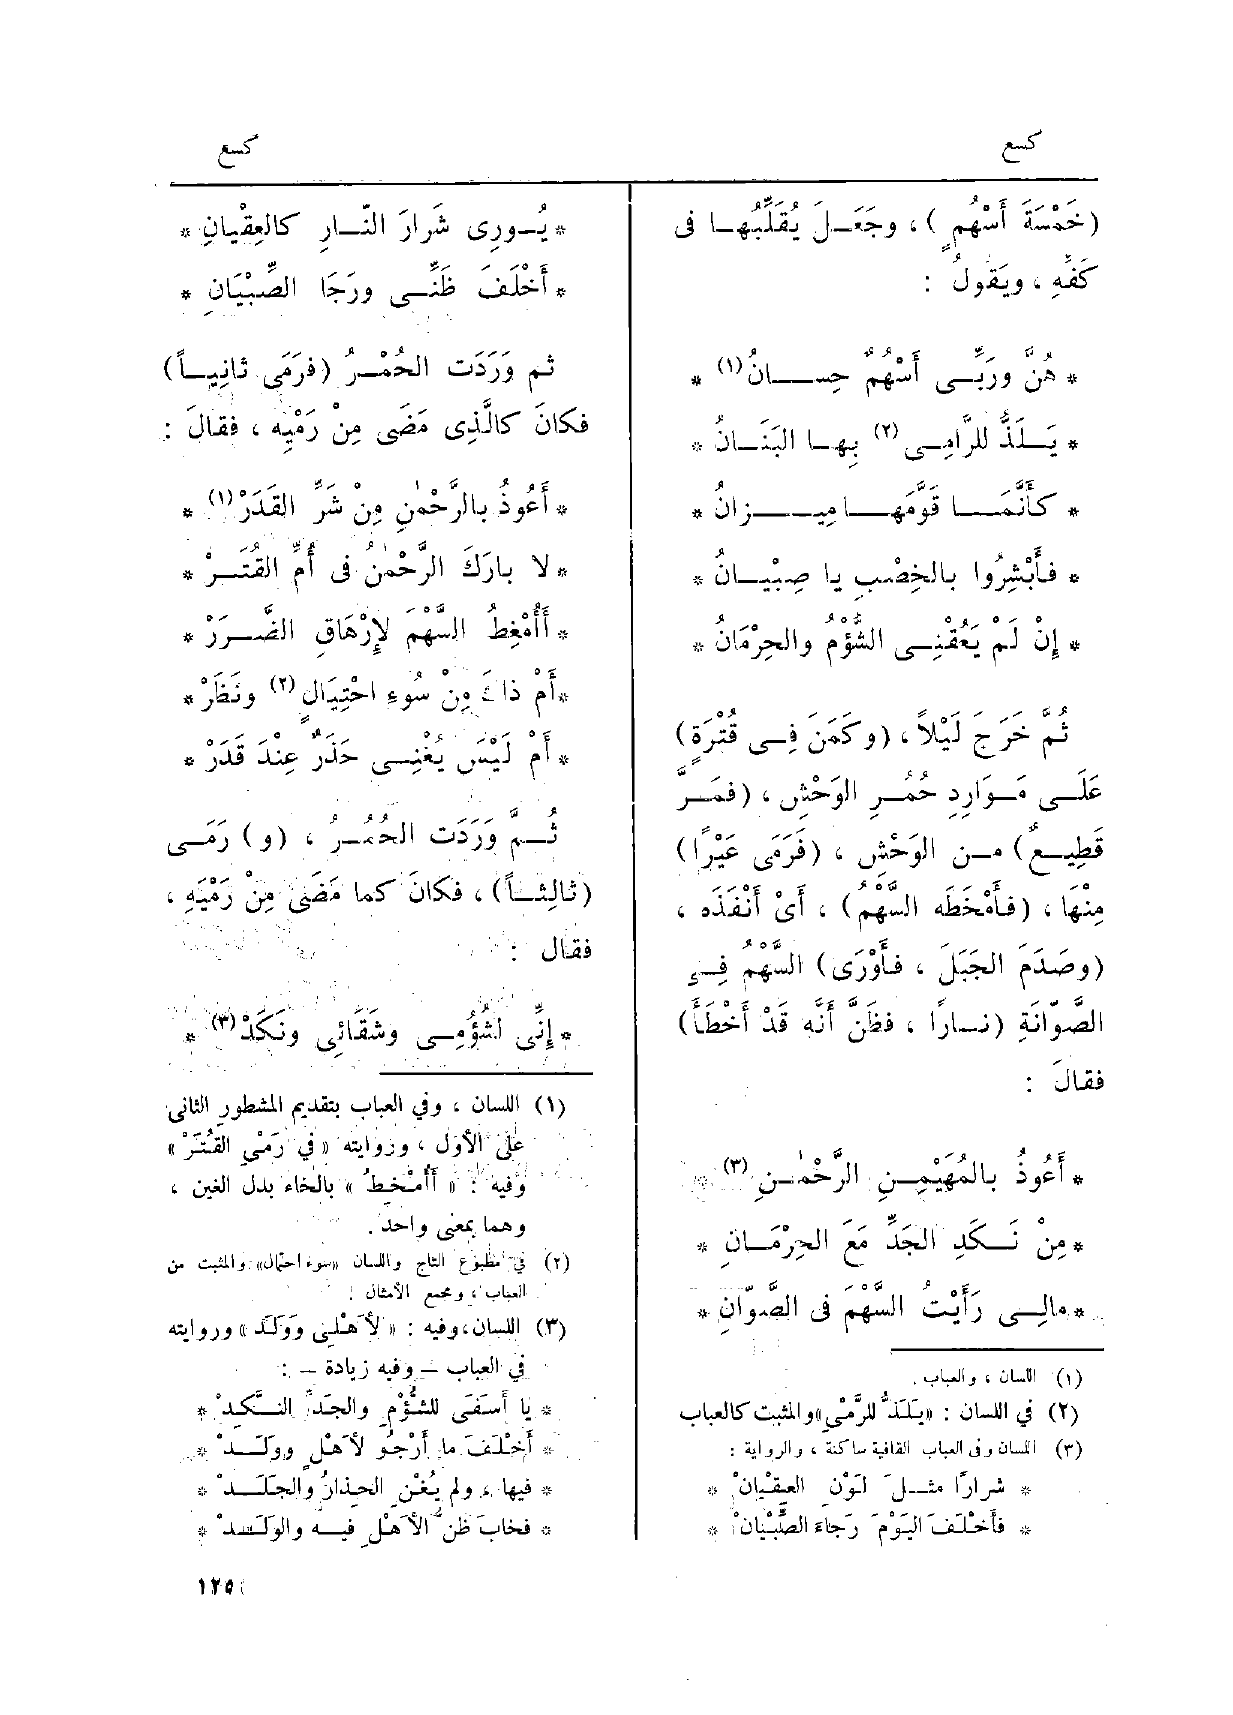 كسع
كسع
(خَمْسَةَ أَسْهُمٍ) ، وجَعَـلَ يُقَلِّبُهـا فى
كَفِّهِ ، ويَقولُ :
* هُنَّ ورَبِّـى أَسْهُمٌ حِسـانُ(١) *
* يَـلَذُّ للرَّامِـى(٢) بِهـا البَنَـانُ *
* كأَنَّمَـا قَوَّمَهـا مِيـزانُ *
* فأَبْشِرُوا بالخِصْبِ يا صِبْيـانُ *
* إِنْ لَمْ يَعُقْنِـى الشُّؤْمُ والحِرْمَانُ *
ثُمَّ خَرَجَ لَيْلاً ، (وكَمَنَ فِـى قُتْرَةٍ)
عَلَـى مَـوَارِدِ حُمُـرِ الوَحْشِ ، (فمَـرَّ
قَطِيـعٌ) مـن الوَحْشِ ، (فَرَمَى عَيْرًا)
مِنْهَا ، (فأَمْخَطَه السَّهْمُ) ، أَىْ أَنْفَذَه ،
(وصَدَمَ الجَبَلَ ، فأَوْرَى) السَّهْمُ فِـى
الصَّوّانَةِ (نـارًا ، فظَنَّ أَنَّه قَدْ أَخْطَأَ)
فقالَ :
* أَعُوذُ بالمُهَيْمِـنِ الرَّحْمٰـنِ(٣) *
* مِنْ نَـكَدِ الجَدِّ مَعَ الحِرْمَـانِ *
* مالِـى رَأَيْتُ السَّهْمَ فى الصَّوّانِ *
(١) اللسان ، والعباب .
(٢) في اللسان : «يَلَذُّ للرَّمْيِ» والمثبت كالعباب
(٣) اللسان وفى العباب القافية ساكنة ، والرواية :
* شرارًا مثـلَ لَوْن العِقْيانْ *
* فأَخْلَفَ اليَوْمَ رَجاءَ الصِّبْيانْ *
* يُـورِى شَرارَ النّـارِ كالعِقْيانِ *
* أَخْلَفَ ظَنِّـى ورَجَا الصِّبْيَانِ *
ثم وَرَدَت الحُمُـرُ (فرَمَى ثانِيـاً)
فكانَ كالَّذِى مَضَى مِنْ رَمْيِه ، فقالَ :
* أَعُوذُ بالرَّحْمٰنِ مِنْ شَرِّ القَدَرْ(١) *
* لا بارَكَ الرَّحْمٰنُ فى أُمِّ القُتَـرْ *
* أَأُمْغِطُ السَّهْمَ لإِرْهَاقِ الضَّـرَرْ *
* أَمْ ذاكَ مِنْ سُوءِ احْتِيَالٍ(٢) ونَظَرْ *
* أَمْ لَيْسَ يُغْنِـى حَذَرٌ عِنْدَ قَدَرْ *
ثُـمَّ وَرَدَت الحُمُـرُ ، (و) رَمَـى
(ثالِثـاً) ، فكانَ كما مَضَى مِنْ رَمْيِهِ ،
فقال :
* إِنِّى لشُؤْمِـى وشَقَائِى ونَكَدْ(٣) *
(١) اللسان ، وفي العباب بتقديم المشطور الثانى
على الأول ، وروايته «في رَمْيِ القُتَرْ»
وفيه : « أَأُمْخِطُ » بالخاء بدل الغين ،
وهما بمعنى واحد .
(٢) في مطبوع التاج واللسان «سوء احتمال» والمثبت من
العباب ، ومجمع الأمثال .
(٣) اللسان ، وفيه : «لأَهْلِى وَوَلَدْ» وروايته
في العباب – وفيه زيادة – :
* يا أَسَفَى للشُّؤْمِ والجَدِّ النَّـكَدْ *
* أَخْلَفَ ما أَرْجُو لأَهْلٍ ووَلَـدْ *
* فيها ، ولم يُغْنِ الحِذارُ والجَلَـدْ *
* فخابَ ظَنُّ الأَهْلِ فيـه والوَلَـدْ *
١٢٥